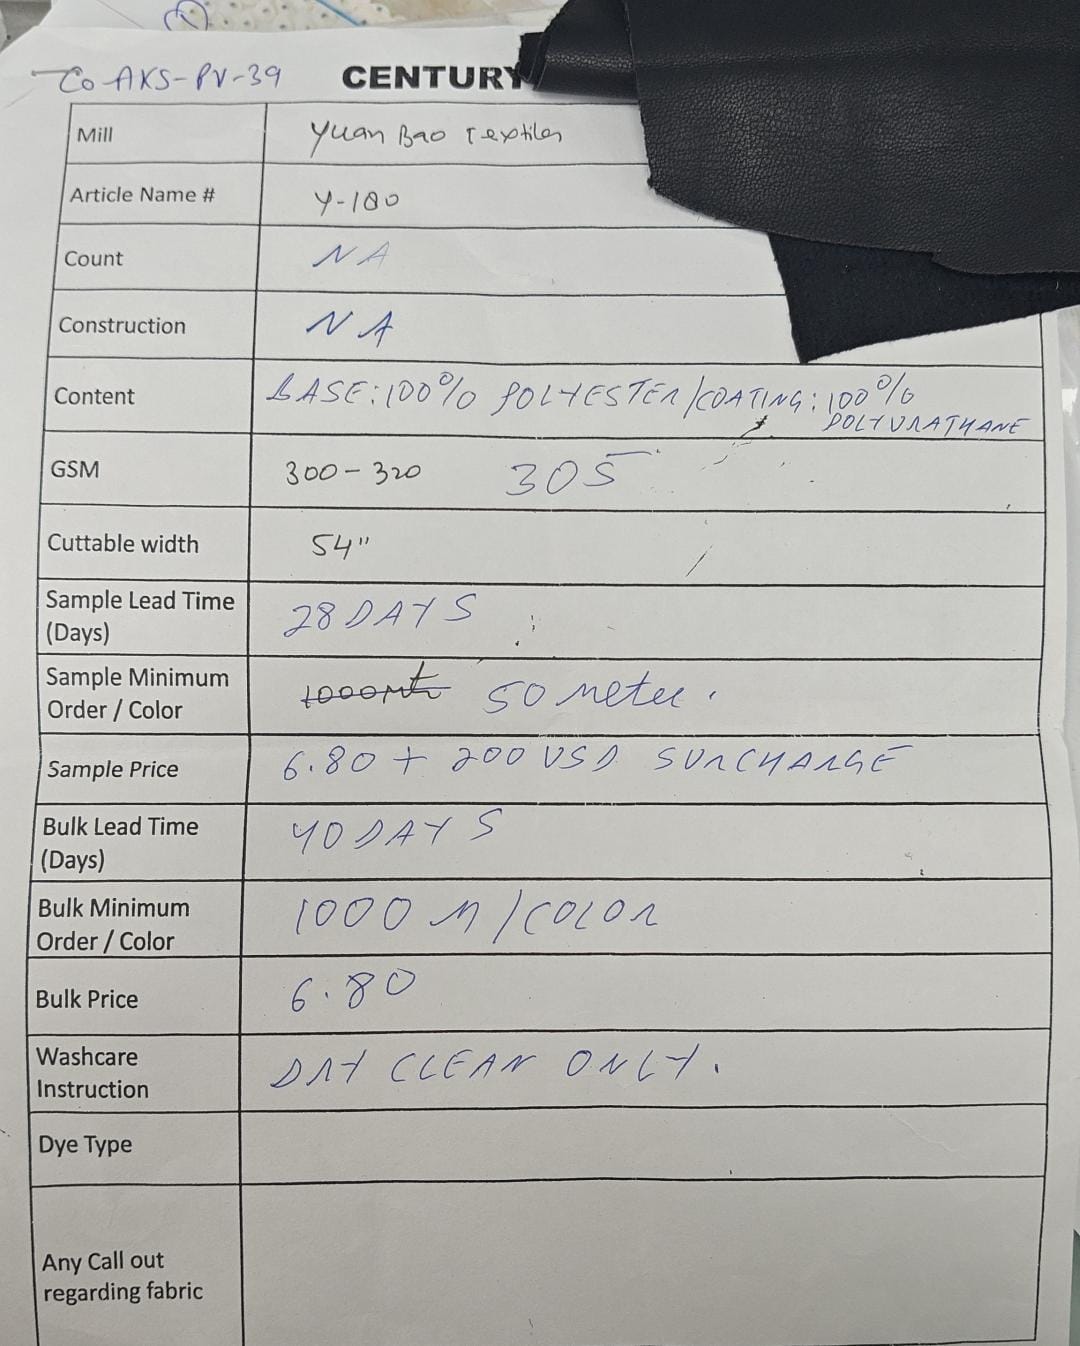 Co AKS-PV-39 CENTURY
Mill Yuan Bao Textiles
Article Name # Y-180
Count NA
Construction NA
Content BASE:100% POLYESTER/COATING:100%
POLYURATHANE
GSM 300-320 305
Cuttable width 54"
Sample Lead Time
(Days) 28 DAYS
Sample Minimum
Order / Color 1000mt 50 meter.
Sample Price 6.80 + 200 USD SURCHARGE
Bulk Lead Time
(Days) 40 DAYS
Bulk Minimum
Order / Color 1000 M/COLOR
Bulk Price 6.80
Washcare
Instruction DRY CLEAN ONLY.
Dye Type
Any Call out
regarding fabric